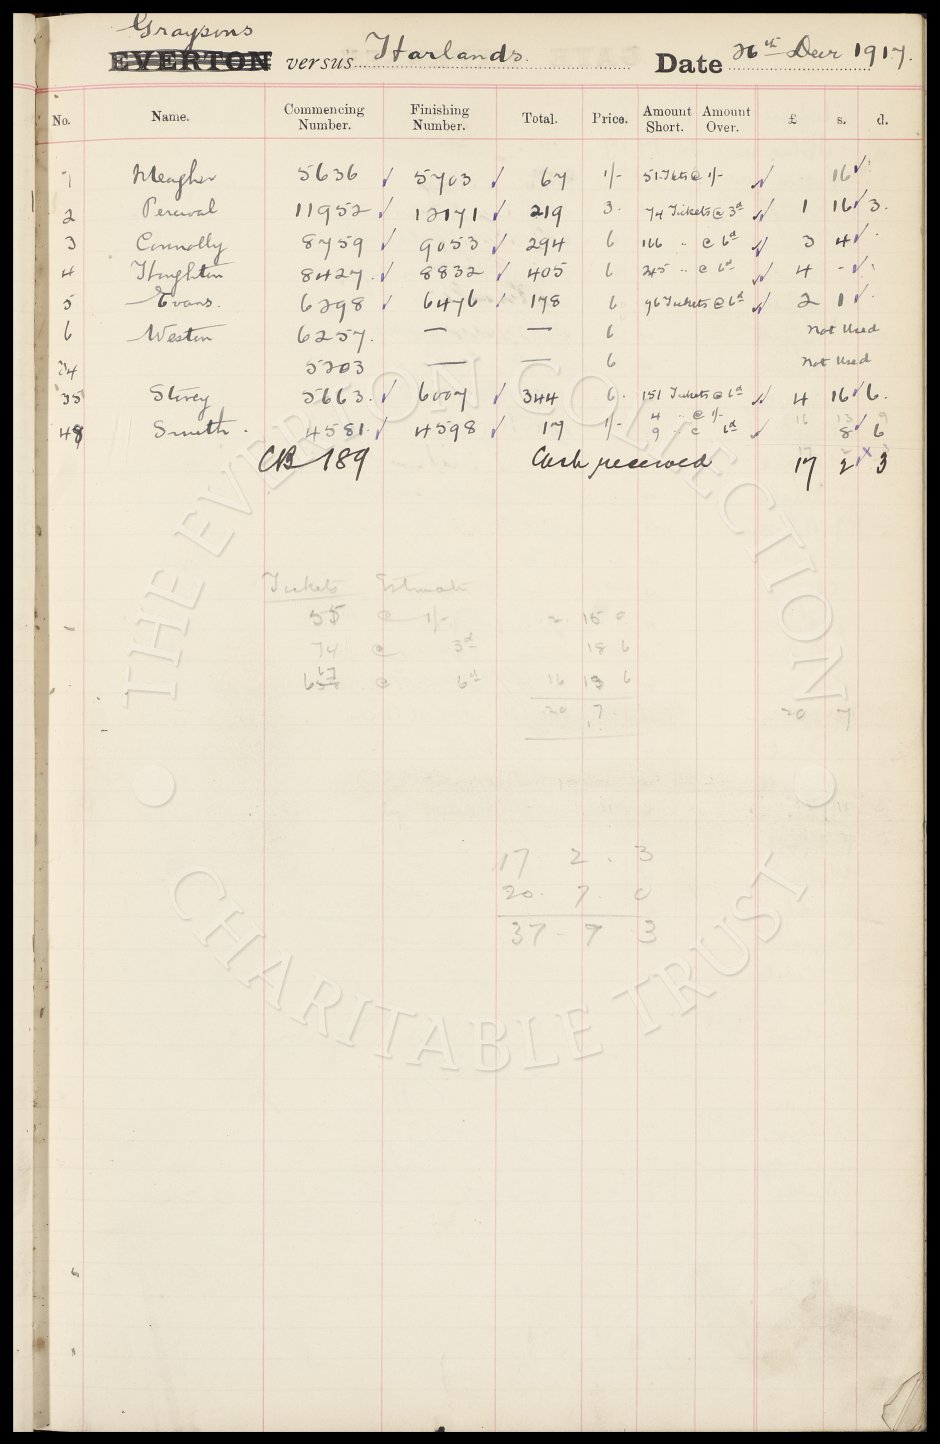 Graysons
EVERTON versus Harlands. Date 26th Decr 1917.
No. Name. Commencing Number. Finishing Number. Total. Price. Amount Short. Amount Over. £ s. d.
1 Meagher 5636 5703 67 1/- 51 Tkts @ 1/- 16
2 Percival 11952 12171 219 3. 74 Tickets @ 3d 1 16 3.
3 Connolly 8759 9053 294 6 166 " @ 6d 3 4 .
4 Houghton 8427. 8832 405 6 245 " @ 6d 4 -
5 Evans. 6298 6476 178 6 96 Tickets @ 6d 2 1 .
6 Weston 6257. — — 6 Not Used
34 5203 — — 6 Not Used
35 Stivey 5663. 6007 344 6. 151 Tickets @ 6d 4 16 6.
48 Smith. 4581. 4598 17 1/- 4 " @ 1/- 9 " @ 6d 8 6
16 13 9
CB 189 Cash received 17 2 3
Tickets Estimate
55 @ 1/- 2. 15 0
74 @ 3d 18 6
667 @ 6d 16 13 6
20 7. 20 7
17 2. 3
20. 7. 0
37 - 9 3
THE EVERTON COLLECTION
CHARITABLE TRUST